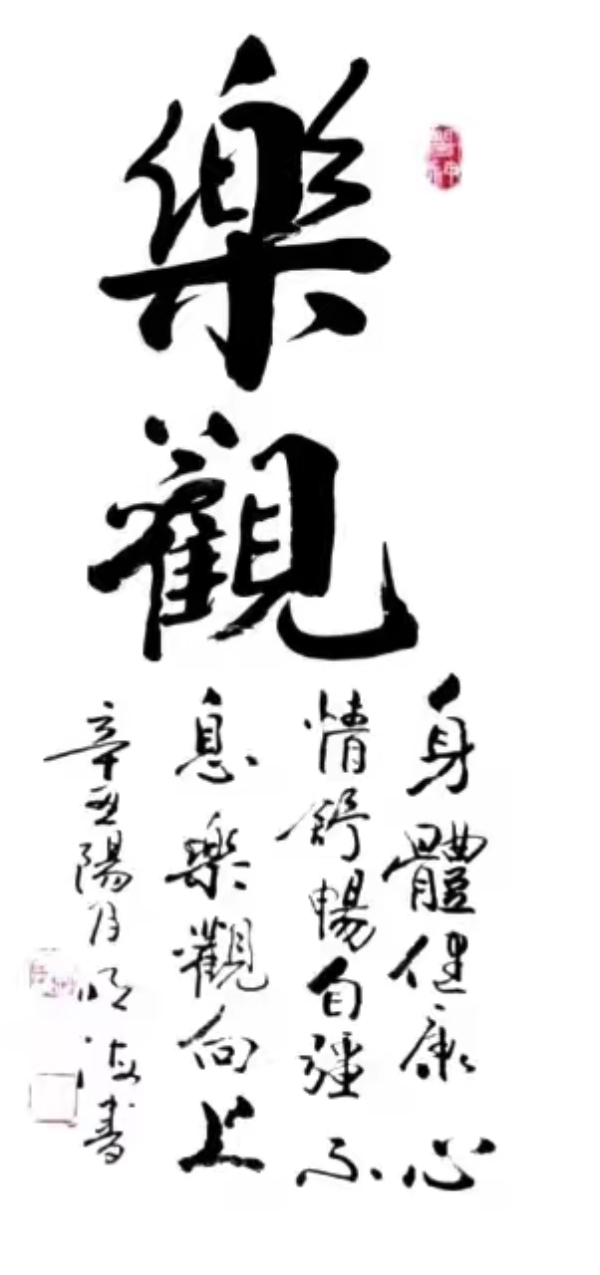 樂觀
身體健康心
情舒暢自彊不
息樂觀向上
辛丑陽月
海書